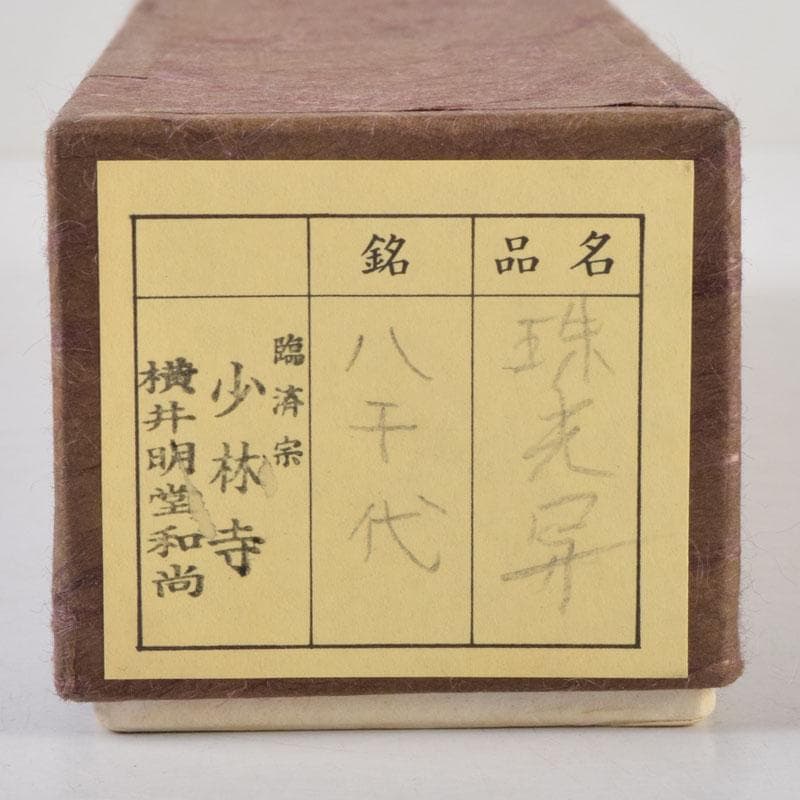 品名
珠光
銘
八千代
臨済宗
少林寺
横井明堂和尚